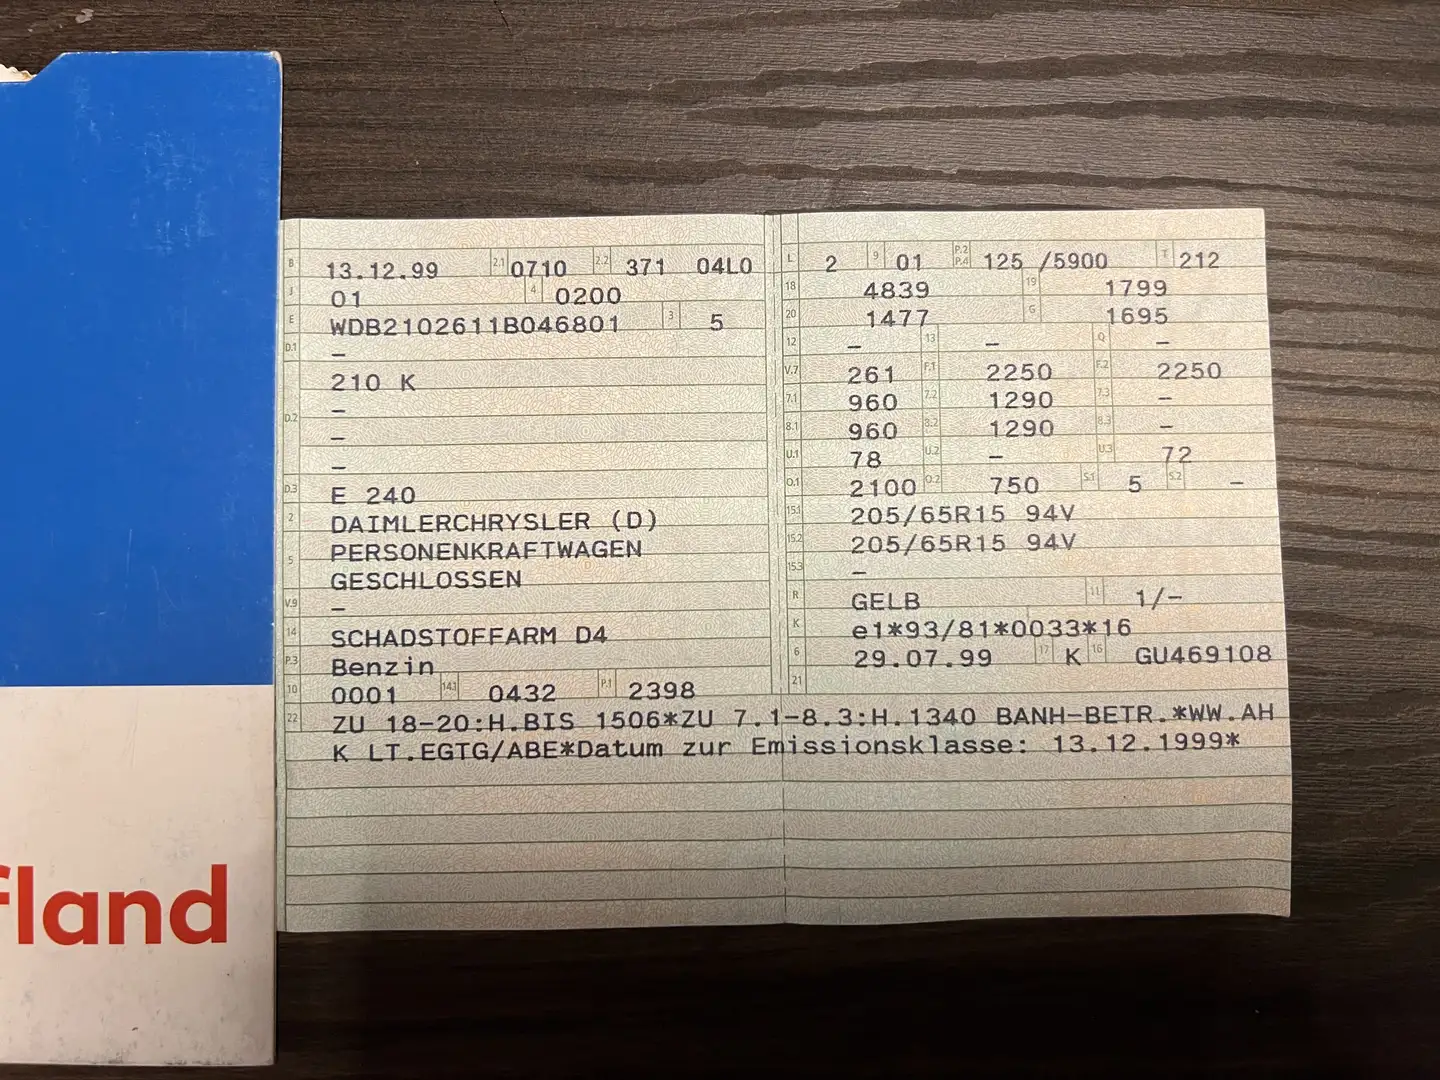 B 13.12.99 2.1 0710 2.2 371 04L0
J 01 4 0200
E WDB2102611B046801 3 5
D.1 –
210 K
D.2 –
–
–
D.3 E 240
2 DAIMLERCHRYSLER (D)
5 PERSONENKRAFTWAGEN
GESCHLOSSEN
V.9 –
14 SCHADSTOFFARM D4
P.3 Benzin
10 0001 14.1 0432 P.1 2398
L 2 9 01 P.2 P.4 125 /5900 T 212
18 4839 19 1799
20 1477 G 1695
12 – 13 – Q –
V.7 261 F.1 2250 F.2 2250
7.1 960 7.2 1290 7.3 –
8.1 960 8.2 1290 8.3 –
U.1 78 U.2 – U.3 72
O.1 2100 O.2 750 S.1 5 S.2 –
15.1 205/65R15 94V
15.2 205/65R15 94V
15.3 –
R GELB 11 1/–
K e1*93/81*0033*16
6 29.07.99 17 K 16 GU469108
21
22 ZU 18-20:H.BIS 1506*ZU 7.1-8.3:H.1340 BANH-BETR.*WW.AH
K LT.EGTG/ABE*Datum zur Emissionsklasse: 13.12.1999*
fland